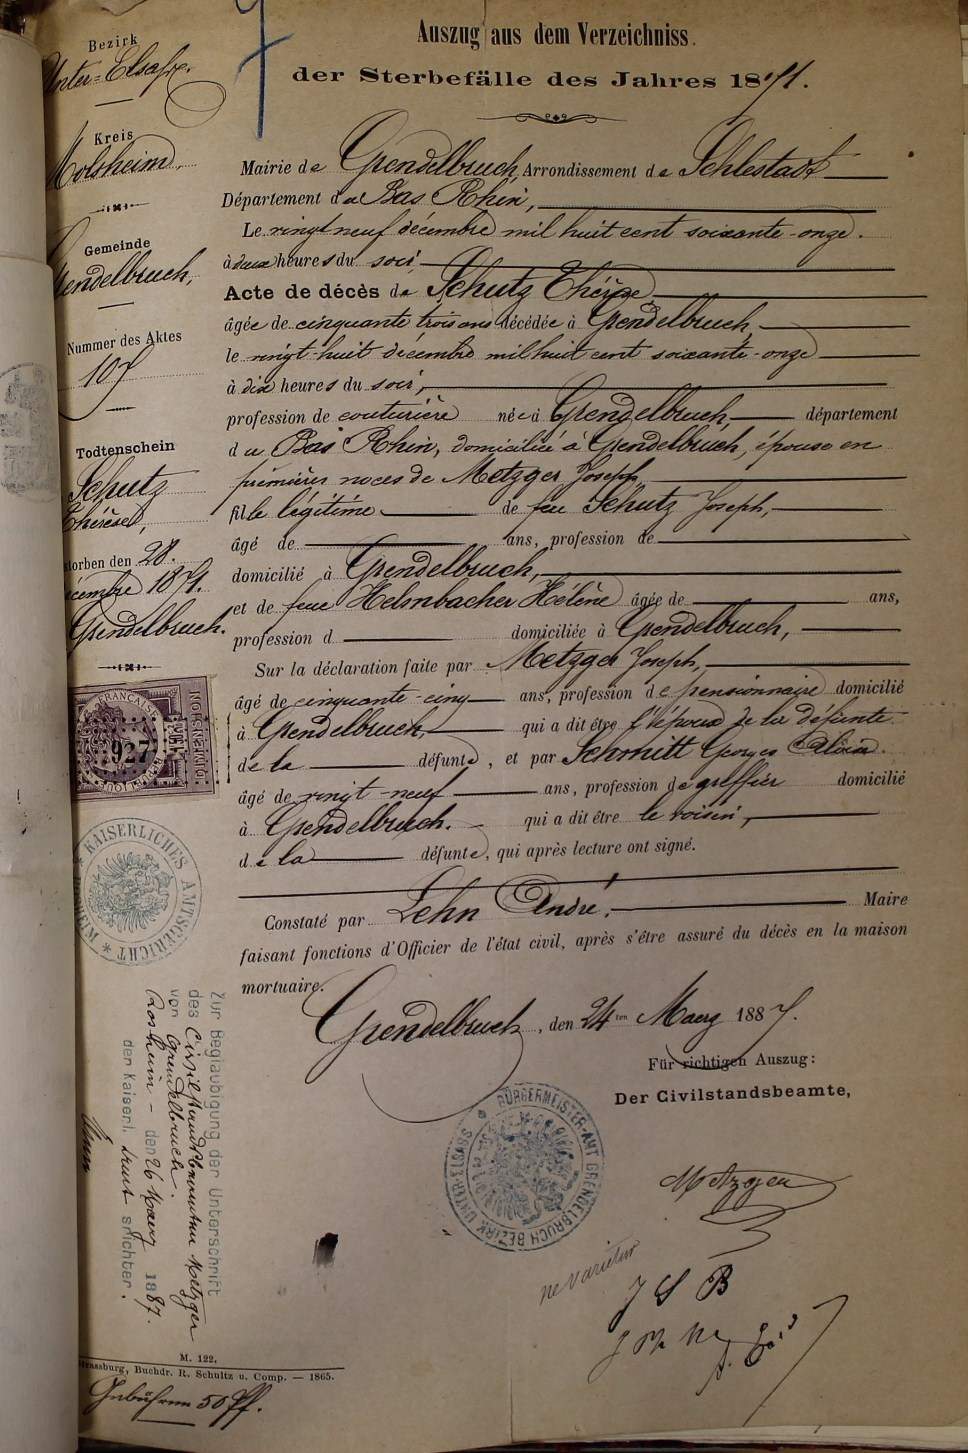 Auszug aus dem Verzeichniss.
der Sterbefälle des Jahres 1871.
Bezirk
Unter-Elsass.
Kreis
Molsheim,
Gemeinde
Grendelbruch,
Nummer des Aktes
107
Todtenschein
Schutz
Thérèse,
storben den 28.
écembre 1871.
Grendelbruch.
Mairie de Grendelbruch, Arrondissement de Schlestadt
Département du Bas Rhin,
Le vingt neuf décembre mil huit cent soixante-onze.
à deux heures du soir,
Acte de décès de Schutz Thérèse,
âgée de cinquante trois ans décédée à Grendelbruch,
le vingt-huit décembre mil huit cent soixante-onze
à dix heures du soir,
profession de couturière née à Grendelbruch, département
du Bas Rhin, domiciliée à Grendelbruch, épouse en
premières noces de Metzger Joseph,
fille légitime de feu Schutz Joseph,
âgé de ans, profession de
domicilié à Grendelbruch,
et de feue Helmbacher Hélène âgée de ans,
profession d domiciliée à Grendelbruch,
Sur la déclaration faite par Metzger Joseph,
âgé de cinquante-cinq ans, profession de pensionnaire domicilié
à Grendelbruch, qui a dit être l'époux de la défunte
de la défunte, et par Schmitt Georges Aloise.
âgé de vingt-neuf ans, profession de greffier domicilié
à Grendelbruch. qui a dit être le voisin,
de la défunte, qui après lecture ont signé.
Constaté par Lehn André, Maire
faisant fonctions d'Officier de l'état civil, après s'être assuré du décès en la maison
mortuaire.
Grendelbruch, den 24ten Maerz 1887.
Für richtigen Auszug:
Der Civilstandsbeamte,
Metzger
BÜRGERMEISTER-AMT GRENDELBRUCH BEZIRK UNTER-ELSASS
ne varietur
J S B
927
KAISERLICHES AMTSGERICHT
Zur Beglaubigung der Unterschrift
des Civilstandsbeamten Metzger
von Grendelbruch.
Rosheim - den 26 Maerz 1887.
der Kaiserl. Amtsrichter.
M. 122.
trassburg, Buchdr. R. Schultz u. Comp. — 1865.
Gebühren 50 Pf.